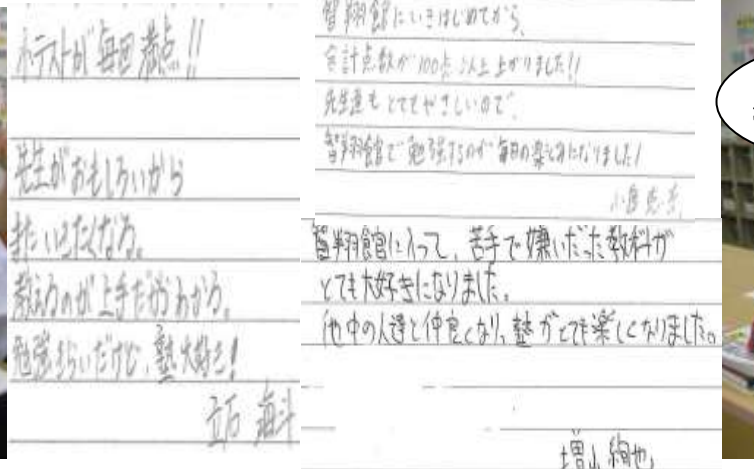 小テストが毎回満点!!
先生がおもしろいから
またいきたくなる。
教えるのが上手だからわかる。
勉強きらいだけど、塾大好き!
立石 海斗
智翔館にいきはじめてから、
合計点数が100点以上上がりました!!
先生達もとてもやさしいので、
智翔館で勉強するのが毎日の楽しみになりました!
小島
智翔館に入って、苦手で嫌いだった教科が
とても大好きになりました。
他中の人達と仲良くなり、塾がとても楽しくなりました。
増山 絢也